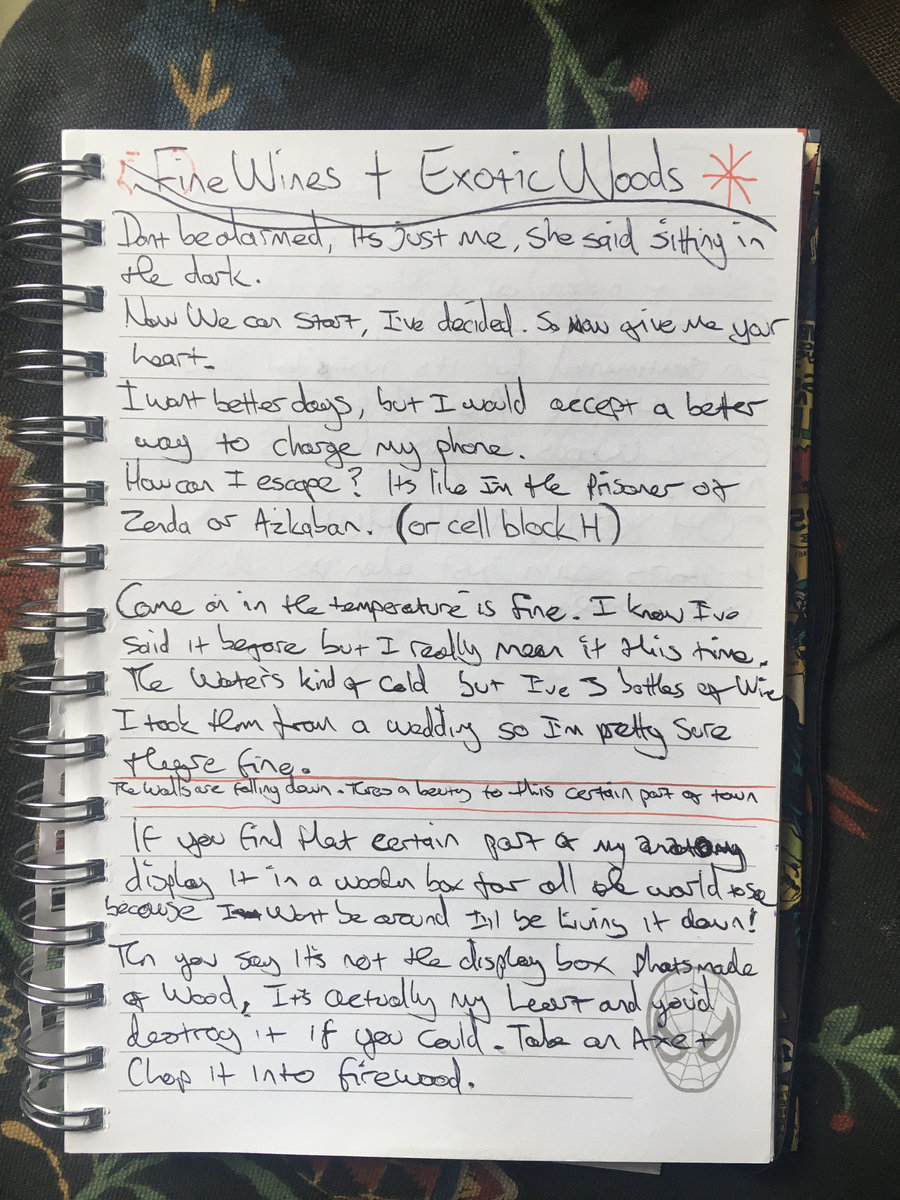 Fine Wines + Exotic Woods
Dont be alarmed, Its just me, She said sitting in
the dark.
Now We can start, I've decided. So now give me your
heart.
I want better days, but I would accept a better
way to charge my phone.
How can I escape? Its like Im the Prisoner of
Zenda or Azkaban. (or cell block H)
Come on in the temperature is fine. I know I've
said it before but I really mean it this time.
The Waters kind of Cold but I've 3 bottles of Wine
I took them from a wedding so Im pretty Sure
theyre fine.
The walls are falling down. Theres a beauty to this certain part of town
If you find that certain part of my anatomy
display it in a wooden box for all the world to see
because I Wont be around I'll be living it down!
Then you say It's not the display box thats made
of Wood, It's actually my heart and you'd
destroy it if you could. Take an Axe +
Chop it into firewood.